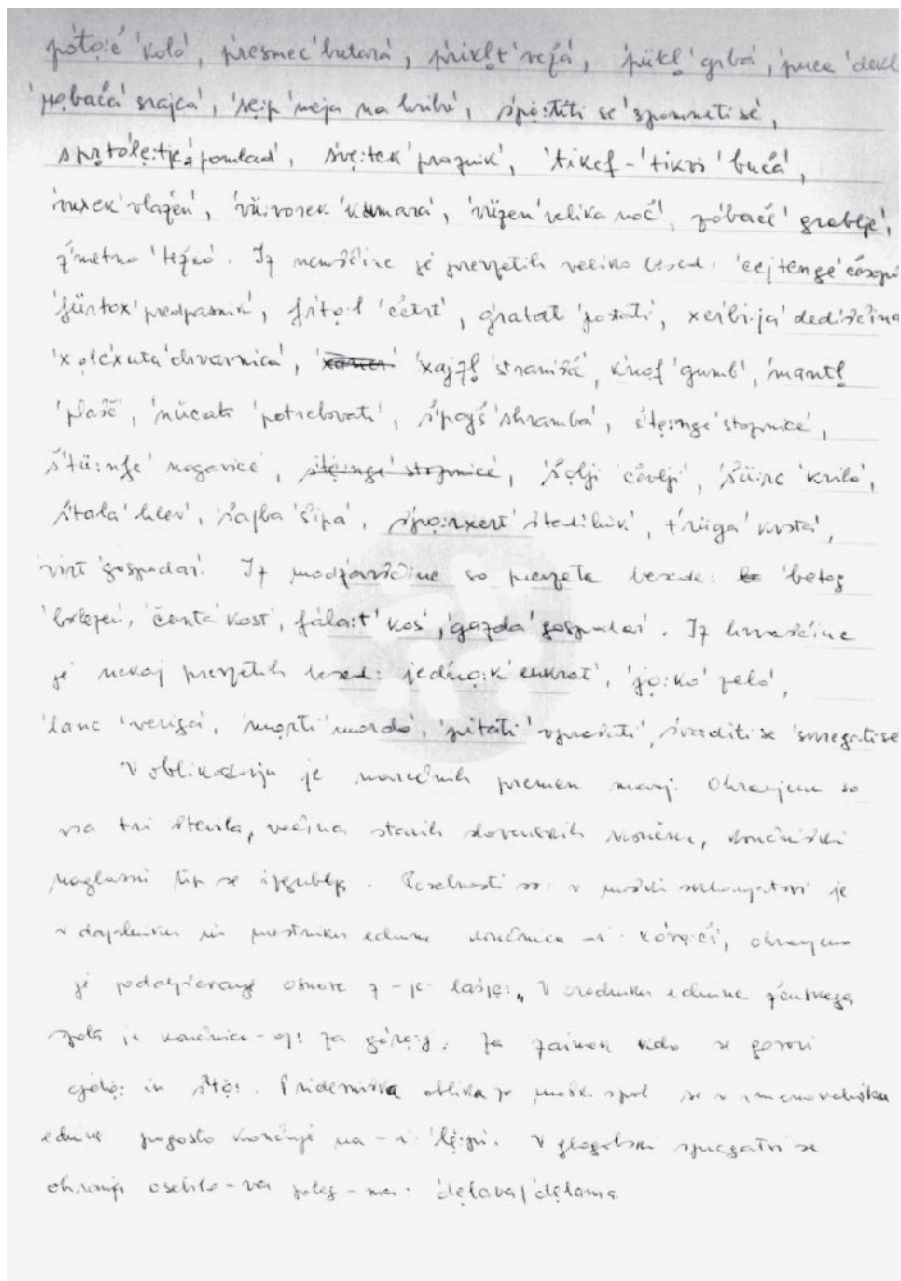 pótạ:č 'kolo', presmec 'butara', prıklẹt 'veja', pükḷ 'grba', puca 'dekl
'rọbača 'srajca', 'sẹ:p 'meja na hribu', spọ:titi se 'spomniti se',
sprtolẹ:tje 'pomlad', svẹ:tek 'praznik', 'tikef - 'tikvi 'buča',
vuxek 'vlažen', 'vü:vorek 'kumara', 'vüzen 'velika noč', zóbače 'grablje',
ž'metno 'težko'. Iz nemščine je prevzetih veliko besed: 'cejtenge 'časopi
fürtox 'predpasnik', frto:l 'četrt', gratati 'postati', xerbija 'dediščina
'xolcxuta 'drvarnica', 'xajzḷ 'stranišče', knof 'gumb', mantḷ
'plašč', nücati 'potrebovati', špajs 'shramba', štẹ:nge 'stopnice',
štü:mfe 'nogavice', štẹ:nge 'stopnice', 'šolji 'čevlji', 'šü:rc 'krilo',
štala 'hlev', šajba 'šipa', špọ:rxert 'štedilnik', trüga 'krsta',
virt 'gospodar'. Iz madžarščine so prevzete besede: 'beteg
'bolezen', čonta 'kost', fála:t 'kos', 'gazda 'gospodar'. Iz hrvaščine
je nekaj prevzetih besed: jedno:k 'enkrat', 'jọ:ko 'zelo',
'lanc 'veriga', 'mọrti 'mordo', 'pitati 'vprašati', svaditi se 'skregati se
V oblikoslovju je naravnih premen manj. Ohranjena so
vsa tri števila, večina starih slovenskih končnic, končniški
naglasni tip se izgublja. Posebnosti so: v moški sklanjatvi je
v dajalniku in mestniku ednine končnica -i: kórạči, ohranjeno
je podaljševanje osnove z -je: V orodniku ednine ženskega
spola je končnica -oj: za górọ:j. Za zaimek kdo se govori
in štọ:. Pridevniška oblika za mošk. spol se v imenovalniku
ednine pogosto končuje na -i: 'lẹ:pi. V glagolski spregatvi se
ohranja osebilo -va poleg -ma: 'dẹlava/'dẹlama